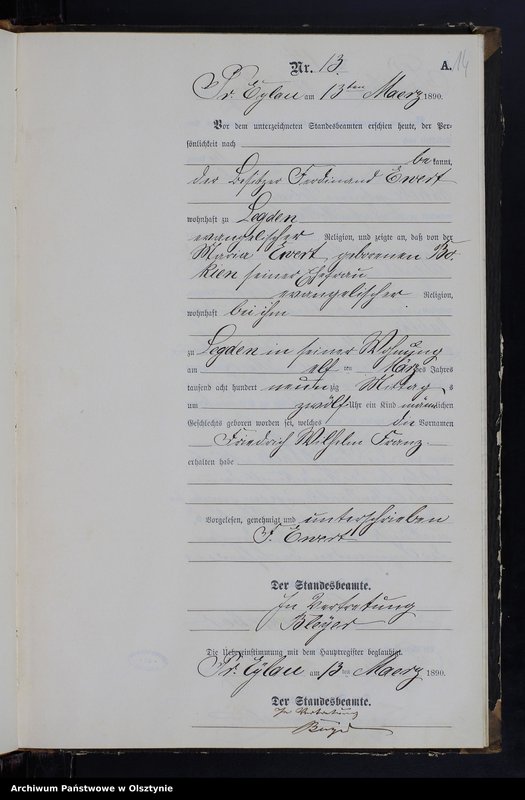 Nr. 13. A. 14
Pr. Eylau am 13ten Maerz 1890.
Vor dem unterzeichneten Standesbeamten erschien heute, der Per-
sönlichkeit nach
bekannt,
der Besitzer Ferdinand Ewert
wohnhaft zu Legden
evangelischer Religion, und zeigte an, daß von der
Maria Ewert, geborenen
seiner Ehefrau
evangelischer Religion,
wohnhaft bei ihm
zu Legden in seiner Wohnung
am elf ten März des Jahres
tausend acht hundert neunzig Mittag s
um zwölf Uhr ein Kind männlichen
Geschlechts geboren worden sei, welches die Vornamen
Friedrich Wilhelm Franz.
erhalten habe
Vorgelesen, genehmigt und unterschrieben
F. Ewert
Der Standesbeamte.
In Vertretung
Die Uebereinstimmung mit dem Hauptregister beglaubigt.
Pr. Eylau am 13ten Maerz 1890.
Der Standesbeamte.
In Vertretung
Archiwum Państwowe w Olsztynie